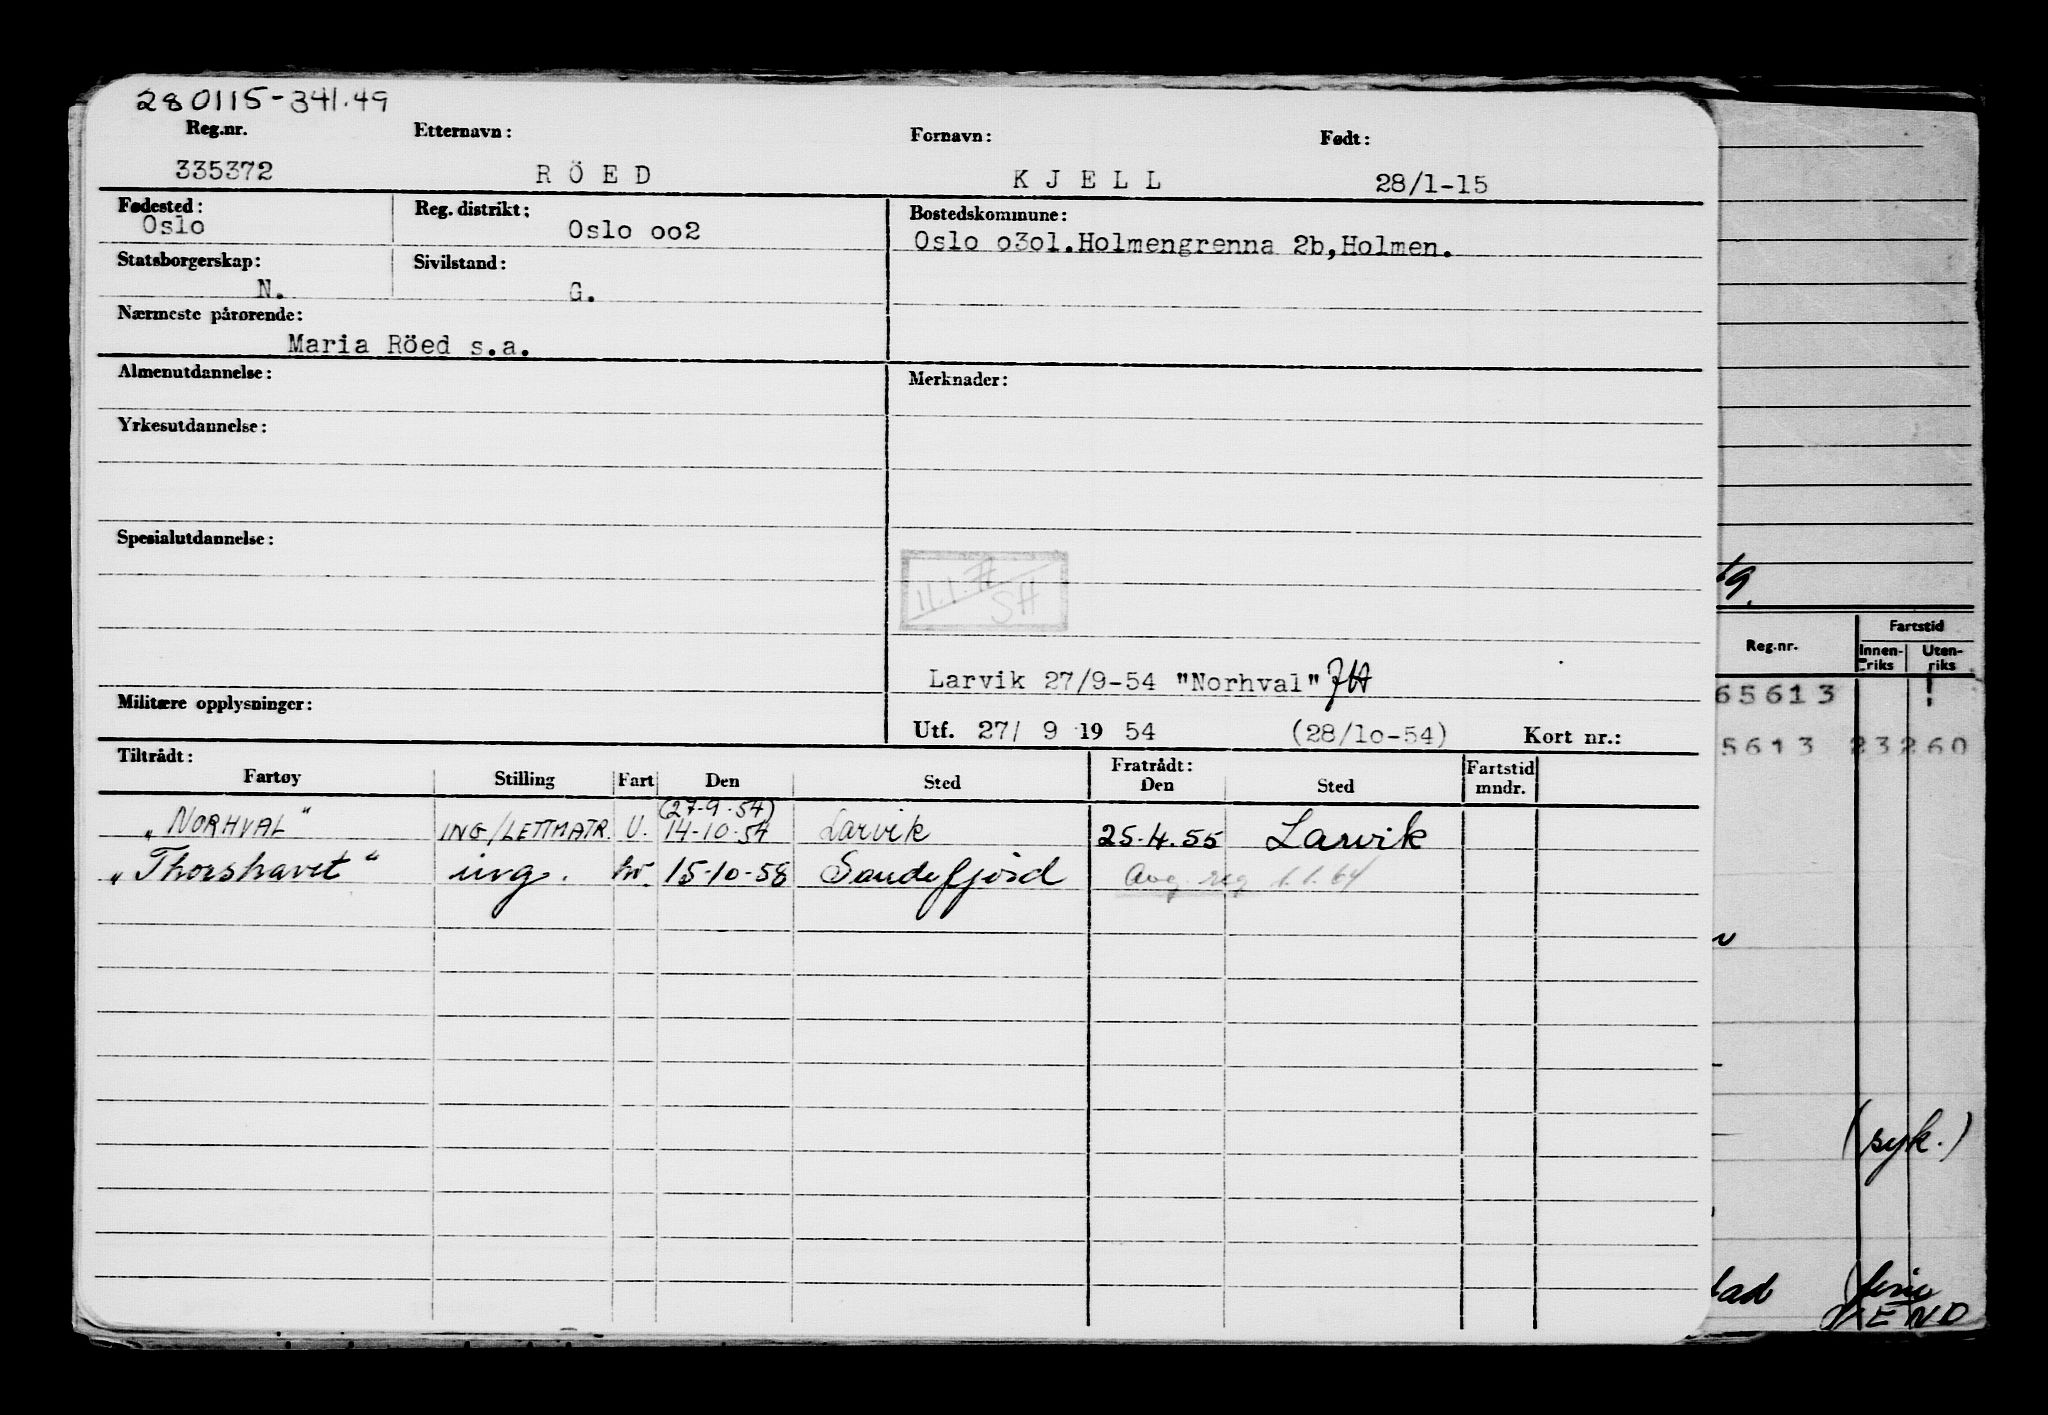 280115-341.49
Reg.nr. Etternavn: Fornavn: Født:
335372 RÖED KJELL 28/1-15
Fødested: Reg. distrikt: Bostedskommune:
Oslo Oslo oo2 Oslo o3o1.Holmengrenna 2b,Holmen.
Statsborgerskap: Sivilstand:
N. G.
Nærmeste pårørende:
Maria Röed s.a.
Almenutdannelse: Merknader:
Yrkesutdannelse:
Spesialutdannelse:
SH
Larvik 27/9-54 "Norhval"
Militære opplysninger:
Utf. 27/ 9 19 54 (28/1o-54) Kort nr.:
Tiltrådt: Fratrådt:
Fartøy Stilling Fart Den Sted Den Sted Fartstid mndr.
(27-9-54)
"NORHVAL" ING/LETTMATR. U. 14-10-54 Larvik 25.4.55 Larvik
"Thorshavet" ing. hv. 15-10-58 Sandefjord Avg. reg 1.1.64
69.
Reg.nr. Fartstid
Innen-riks Uten-riks
65613 !
5613 23260
(syk.)
END